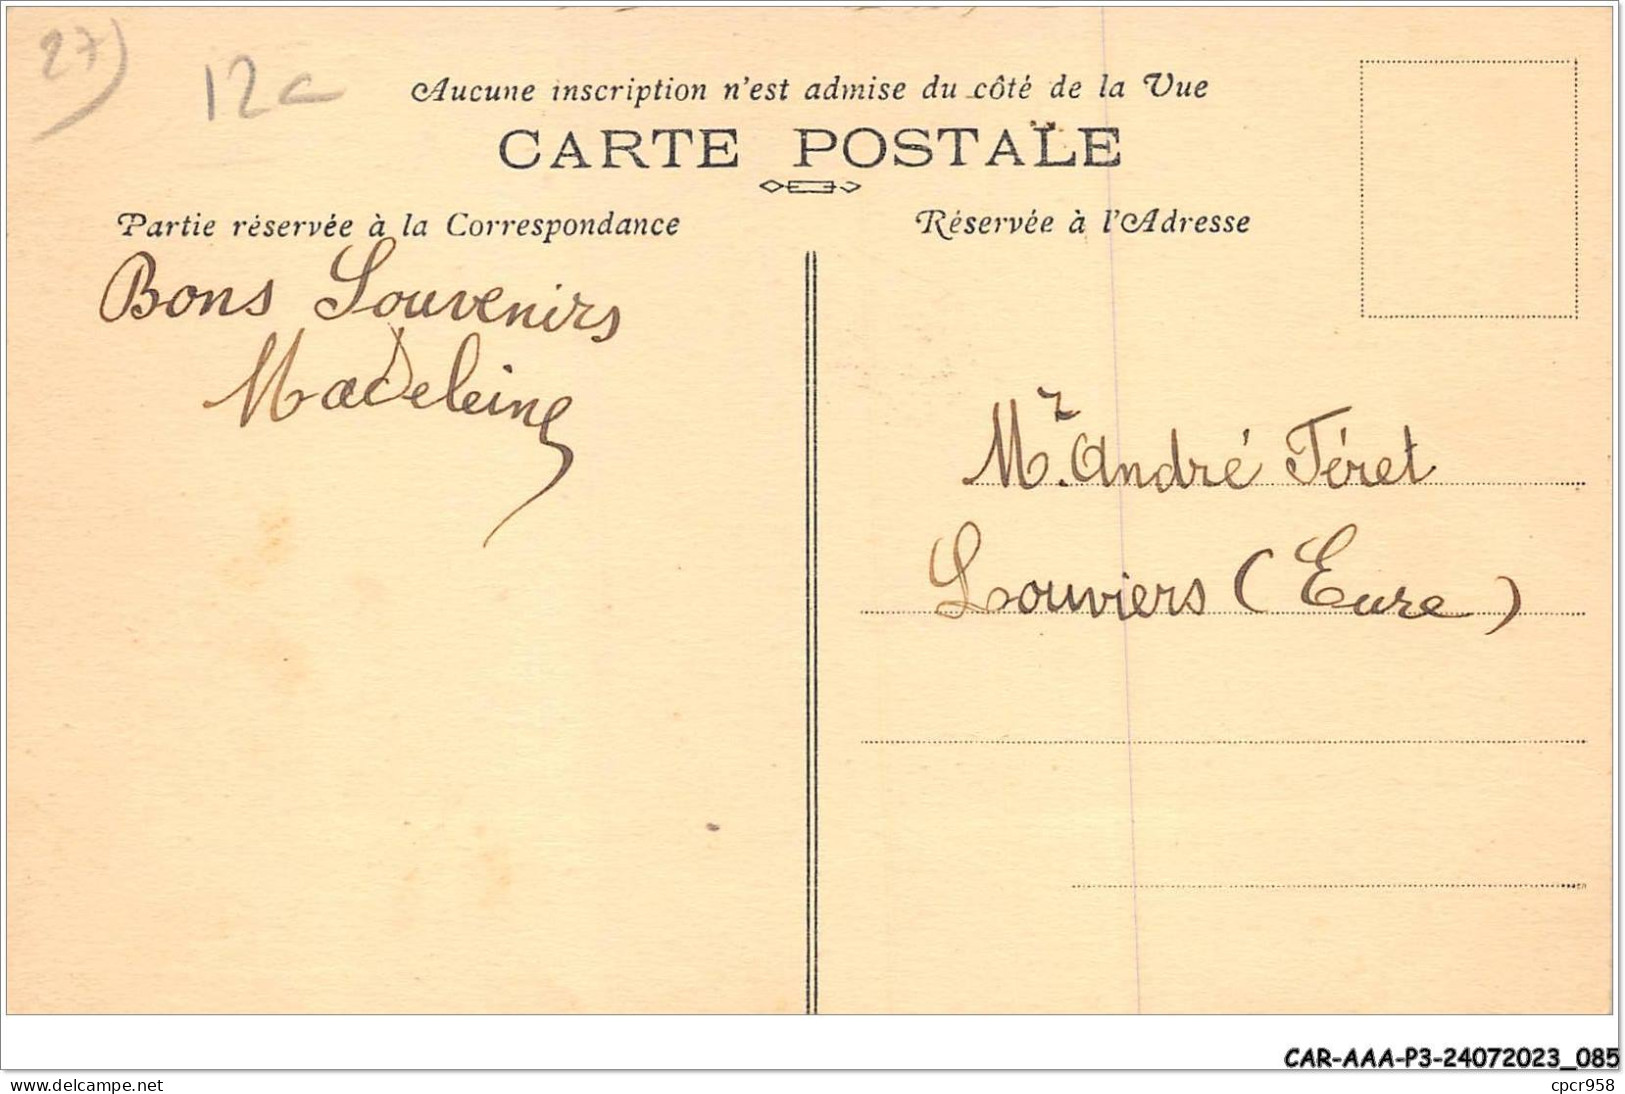 27)
12c
Aucune inscription n'est admise du côté de la Vue
CARTE POSTALE
Partie réservée à la Correspondance
Réservée à l'Adresse
Bons Souvenirs
Madeleine
Mr. André Féret
Louviers (Eure)
CAR-AAA-P3-24072023_085
www.delcampe.net
cpcr958